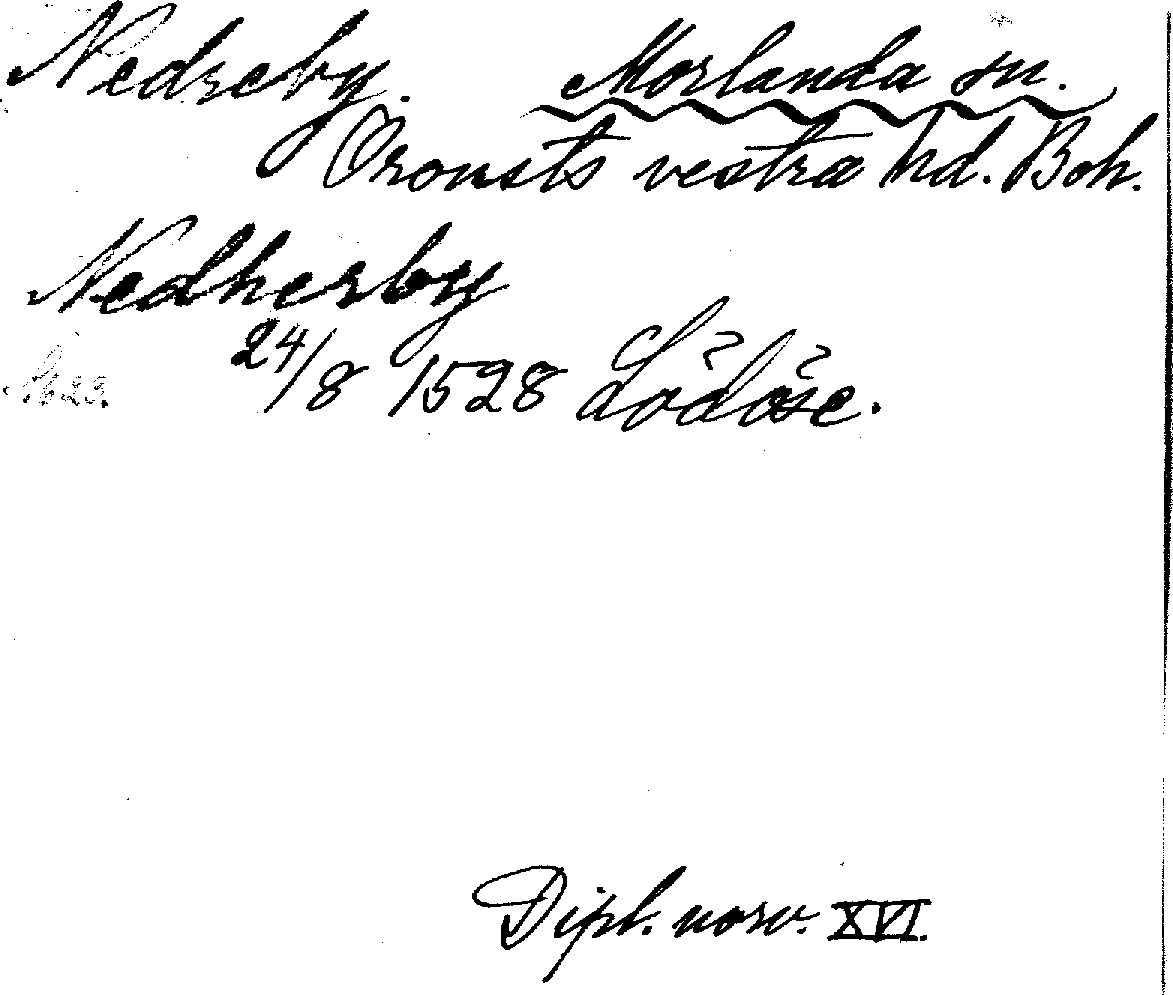 Nedreby. Morlanda sn.
Orousts vestra hd. Boh.
Nedherby
24/8 1528 Lödöse.
Dipl. norv. XVI.